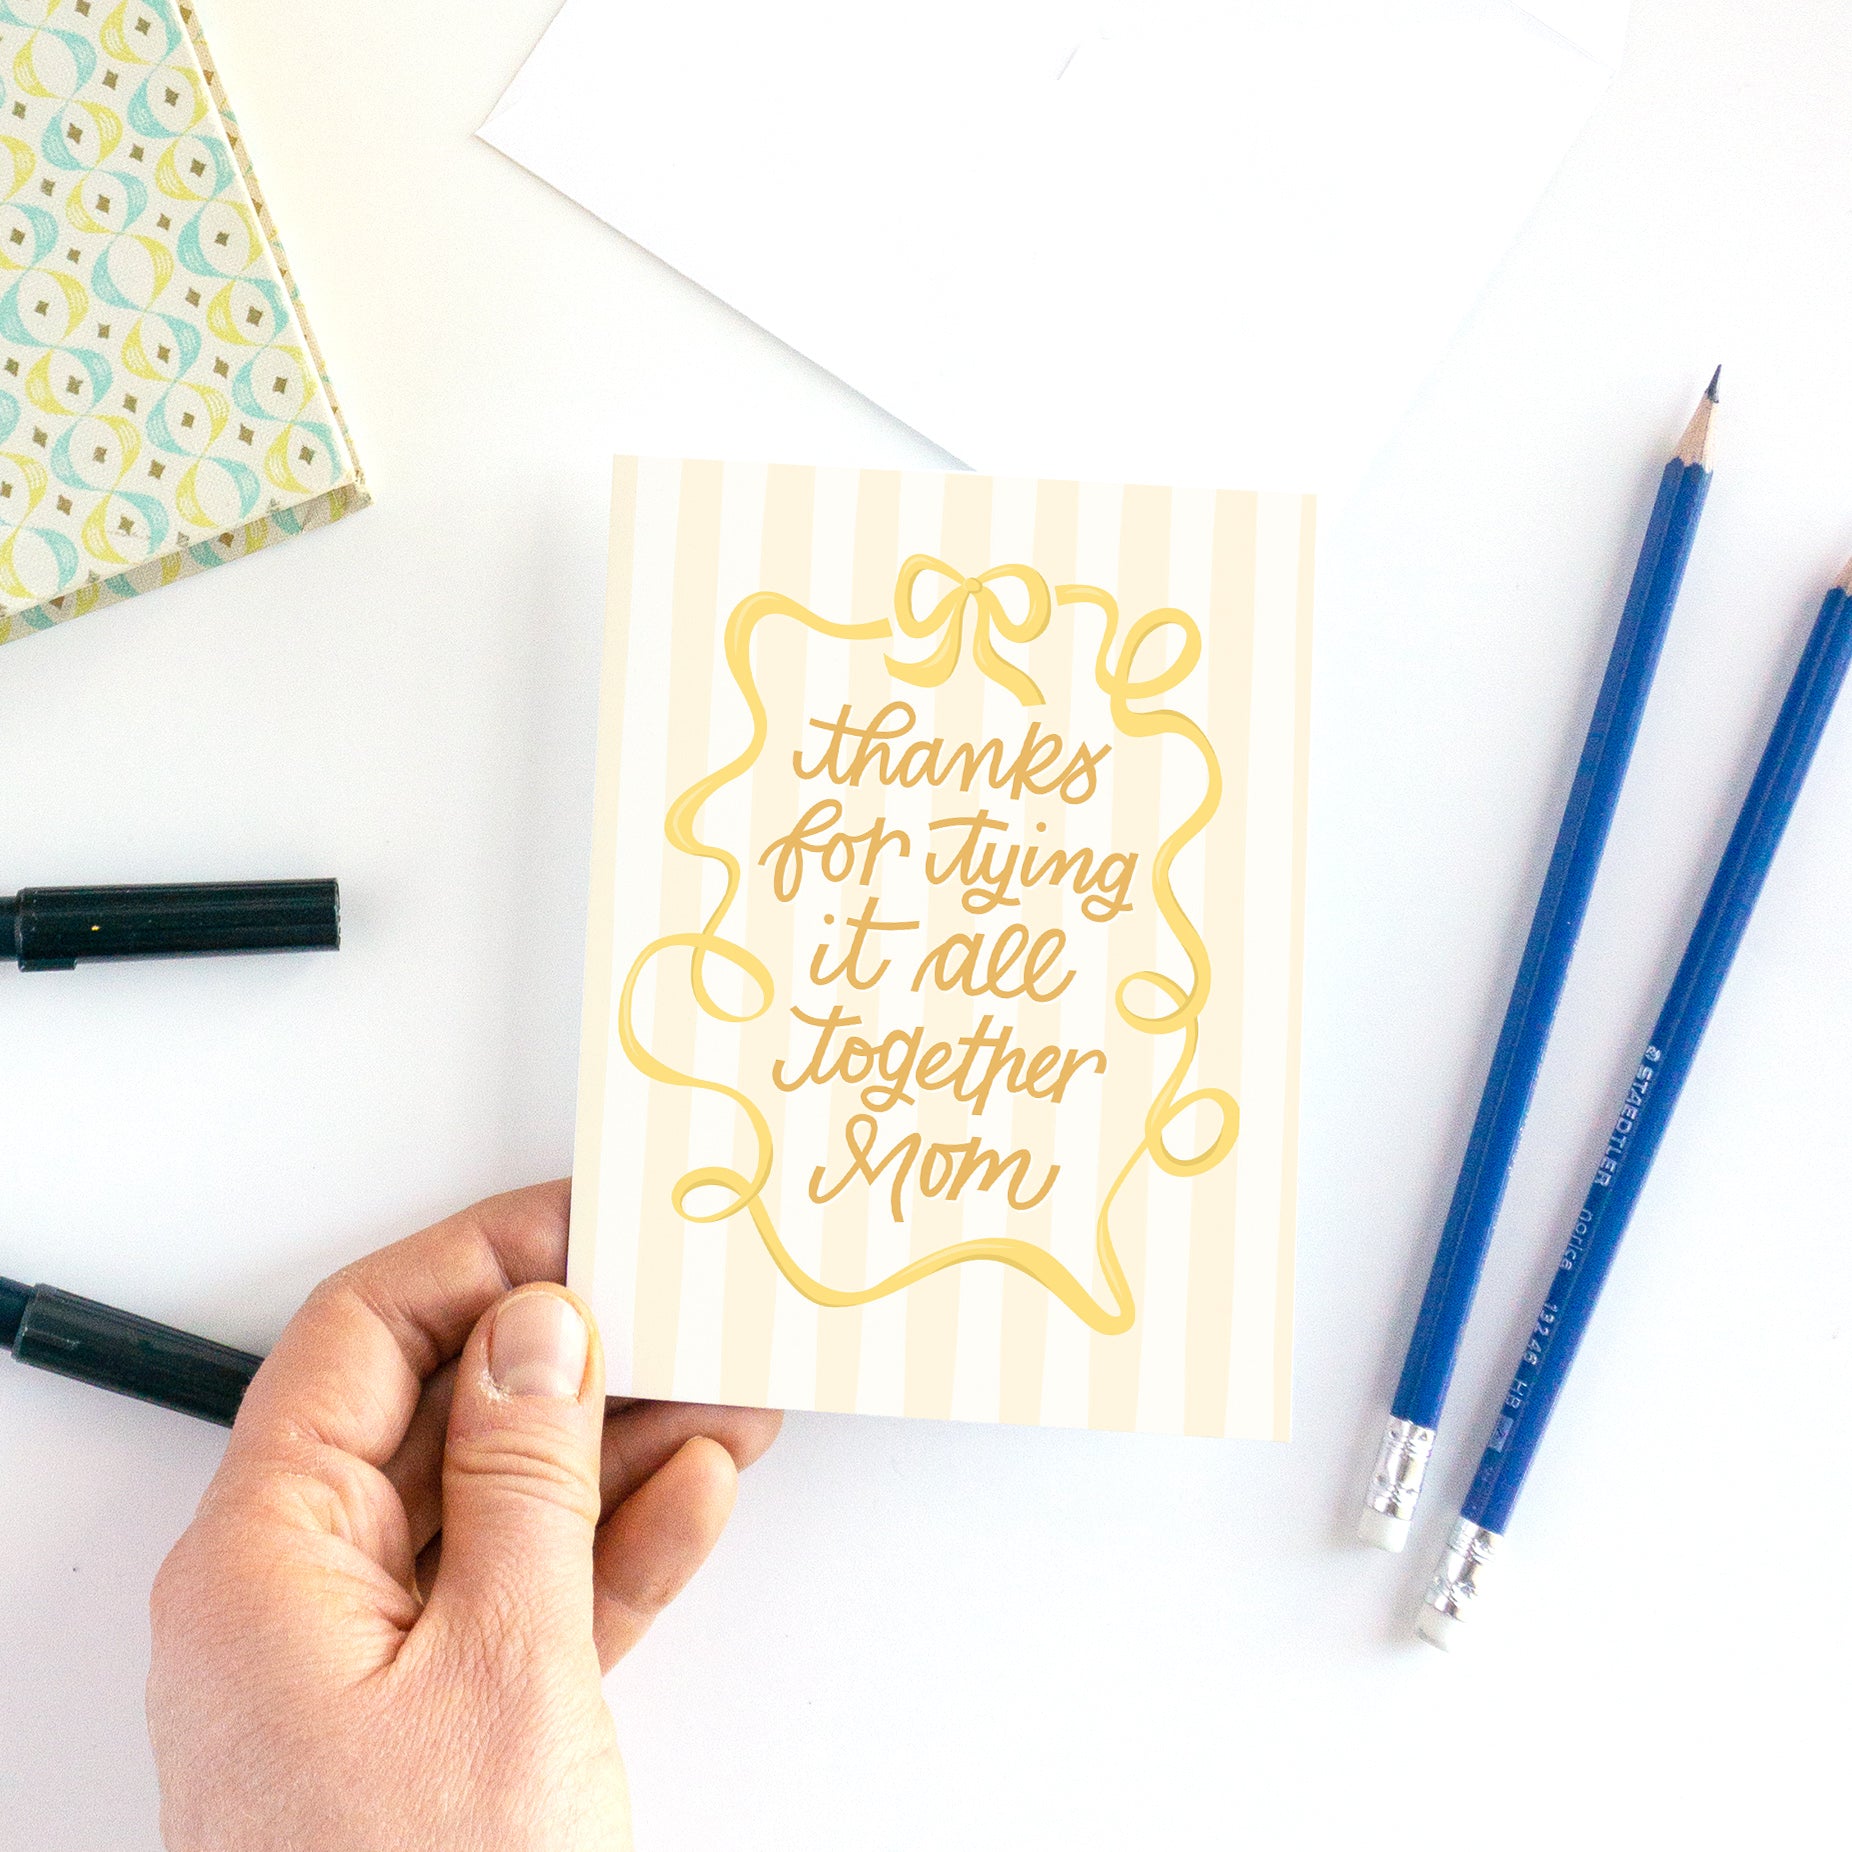 thanks
for tying
it all
together
Mom
STAEDTLER norica 132 46 HB 2